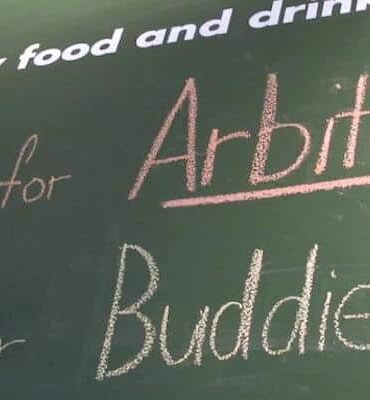 food and drink
for Arbit
Buddie